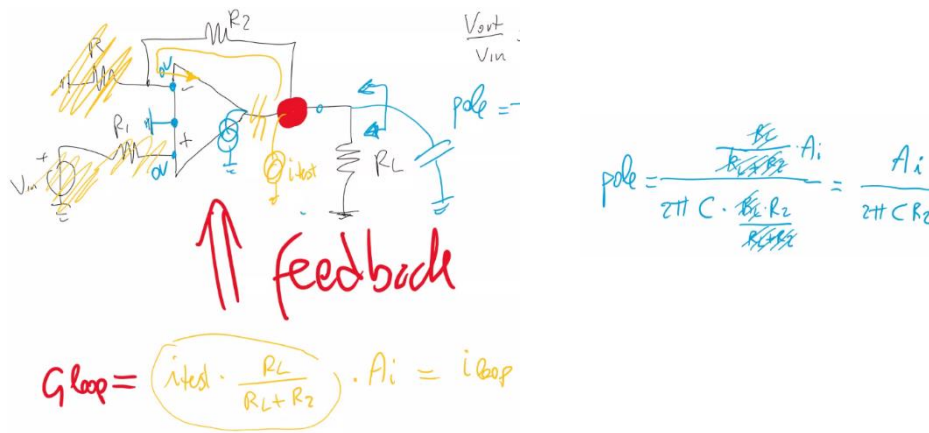 R2
Vout
Vin
R
0V
-
pole = -
R1
+
+
0V
Vin
itest
RL
feedback
Gloop = itest · RL / (RL + R2) · Ai = iloop
pole = RL / (RL+R2) · Ai / 2π C · RL·R2 / (RL+R2) = Ai / 2π C R2